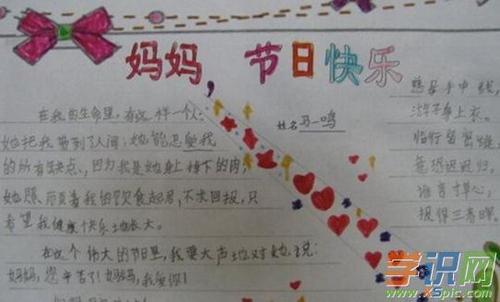 妈妈，节日快乐
姓名马一鸣
在我的生命里，有这样一个人：
她把我带到了人间；她能忍受我
的所有缺点，因为我是她身上掉下的肉，
她照顾着我的饮食起居，不求回报，只
希望我健康快乐地长大。
在这个伟大的节日里，我要大声地对她说：
妈妈，您辛苦了！妈妈，我爱你！
慈母手中线，
游子身上衣。
临行密密缝，
意恐迟迟归。
谁言寸草心，
报得三春晖
学识网
www.xspic.com